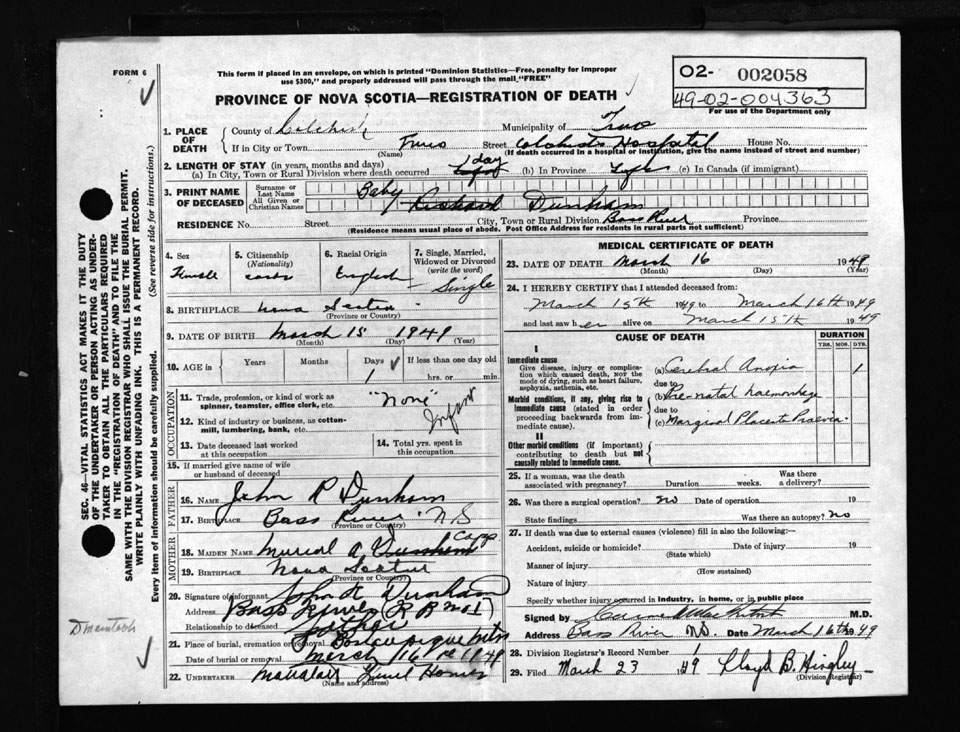 FORM 6
This form if placed in an envelope, on which is printed "Dominion Statistics—Free, penalty for improper
use $300," and properly addressed will pass through the mail "FREE"
O2- 002058
49-02-004363
For use of the Department only
PROVINCE OF NOVA SCOTIA—REGISTRATION OF DEATH
1. PLACE OF DEATH
County of Municipality of Truro
If in City or Town Truro (Name) Street Colchester Hospital House No.
(If death occurred in a hospital or institution, give the name instead of street and number)
2. LENGTH OF STAY (in years, months and days)
(a) In City, Town or Rural Division where death occurred 1 day (b) In Province Life (c) In Canada (if immigrant)
3. PRINT NAME OF DECEASED
Surname or Last Name Baby
All Given or Christian Names Dunham
RESIDENCE No. Street City, Town or Rural Division Bass River Province
(Residence means usual place of abode. Post Office Address for residents in rural parts not sufficient)
4. Sex Female
5. Citizenship (Nationality)
6. Racial Origin English
7. Single, Married, Widowed or Divorced (write the word) Single
8. BIRTHPLACE Nova Scotia
(Province or Country)
9. DATE OF BIRTH March 15 1949
(Month) (Day) (Year)
10. AGE in Years Months Days 1 If less than one day old hrs. or min.
OCCUPATION
11. Trade, profession, or kind of work as spinner, teamster, office clerk, etc. "None"
Infant
12. Kind of industry or business, as cotton-mill, lumbering, bank, etc.
13. Date deceased last worked at this occupation
14. Total yrs. spent in this occupation
15. If married give name of wife or husband of deceased
FATHER
16. NAME John R Dunham
17. BIRTHPLACE Bass River N.S
(Province or Country)
MOTHER
18. MAIDEN NAME Muriel A.
19. BIRTHPLACE Nova Scotia
(Province or Country)
20. Signature of informant Dunham
Address Bass River (R R No 1)
Relationship to deceased Father
21. Place of burial, cremation or removal
Date of burial or removal March 16 1949
22. UNDERTAKER
(Name and address)
MEDICAL CERTIFICATE OF DEATH
23. DATE OF DEATH March 16 1949
(Month) (Day) (Year)
24. I HEREBY CERTIFY that I attended deceased from:
March 15th 1949 to March 16th 1949
and last saw her alive on March 15th 1949
CAUSE OF DEATH
DURATION
YRS. MOS. DYS.
I
Immediate cause
Give disease, injury or complication which caused death, NOT the mode of dying, such as heart failure, asphyxia, asthenia, etc.
(a) Cerebral Anoxia 1
due to
Morbid conditions, if any, giving rise to immediate cause (stated in order proceeding backwards from immediate cause).
(b) Pre-natal haemorrhage
due to
(c) Marginal Placenta Praevia
II
Other morbid conditions (if important) contributing to death but not causally related to immediate cause.
25. If a woman, was the death associated with pregnancy? Duration weeks. Was there a delivery?
26. Was there a surgical operation? no Date of operation 19
State findings Was there an autopsy? No
27. If death was due to external causes (violence) fill in also the following:—
Accident, suicide or homicide? Date of injury 19
(State which)
Manner of injury
(How sustained)
Nature of injury
Specify whether injury occurred in industry, in home, or in public place
Signed by M.D.
Address Bass River N.S. Date March 16th 1949
28. Division Registrar's Record Number 1
29. Filed March 23 1949 Lloyd B. Hingley
(Division Registrar)
SEC. 46—VITAL STATISTICS ACT MAKES IT THE DUTY
OF THE UNDERTAKER OR PERSON ACTING AS UNDERTAKER TO OBTAIN ALL THE PARTICULARS REQUIRED
IN THE "REGISTRATION OF DEATH" AND TO FILE THE
SAME WITH THE DIVISION REGISTRAR WHO SHALL ISSUE THE BURIAL PERMIT.
WRITE PLAINLY WITH UNFADING INK. THIS IS A PERMANENT RECORD.
Every item of information should be carefully supplied. (See reverse side for instructions.)